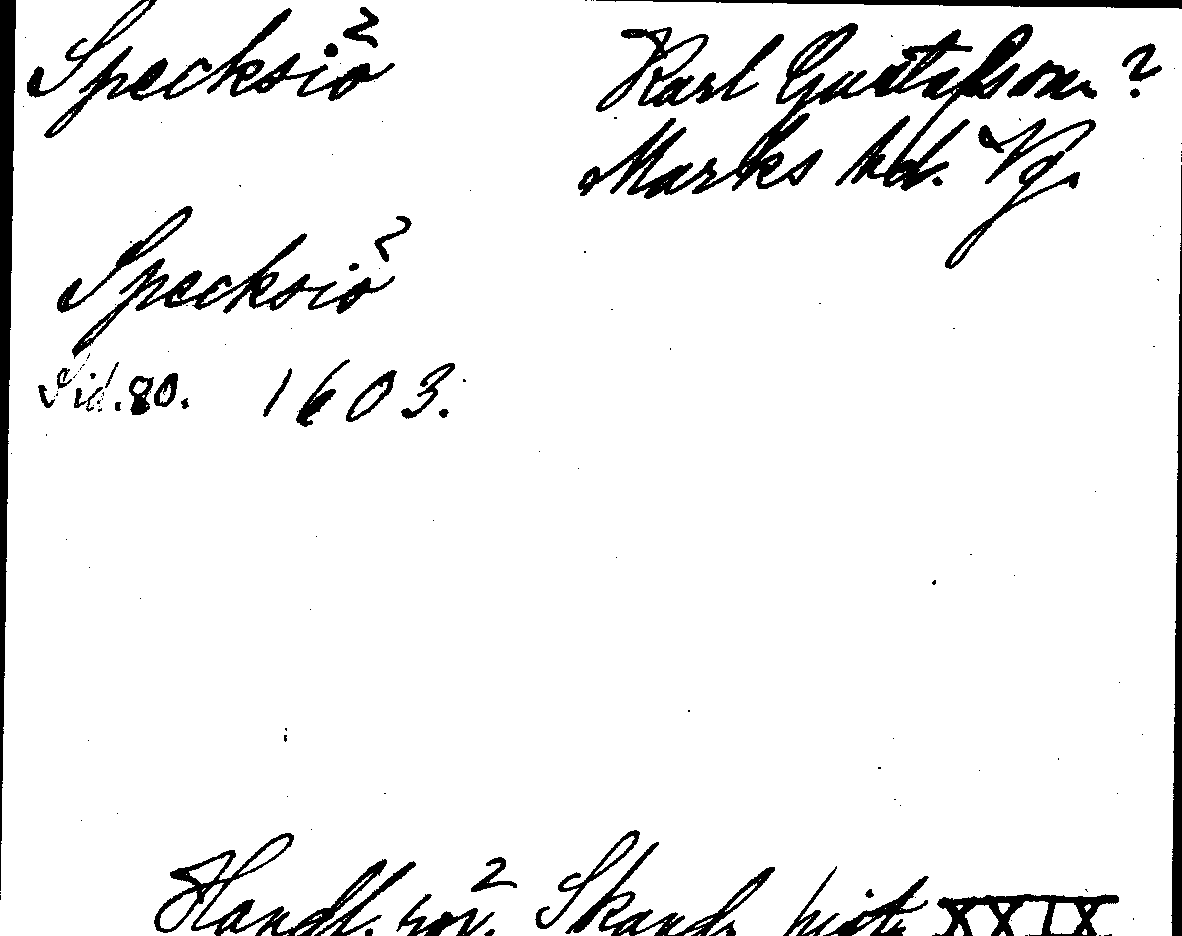 Specksiö Karl Gustafsson ?
Marks hd. Vg.
Specksiö
Sid. 80. 1603.
Handl. rör. Skand. hist. XXIX